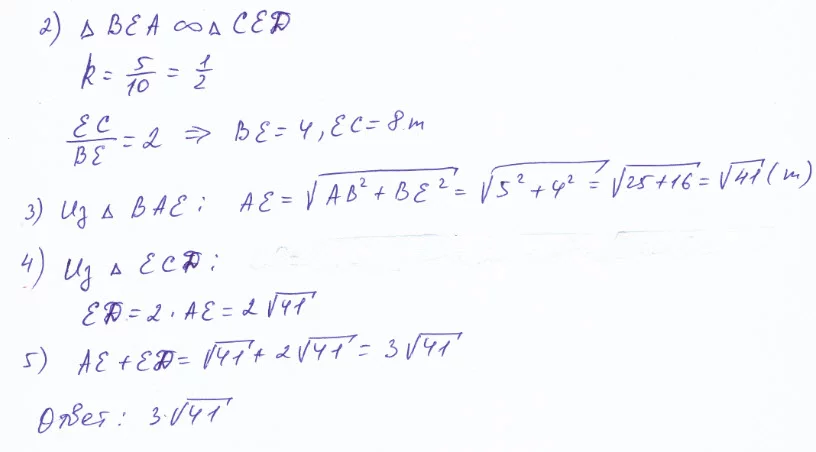 2) △ BEA ∞ △ CED
k = 5/10 = 1/2
EC/BE = 2 ⇒ BE = 4, EC = 8 m
3) Из △ BAE: AE = √(AB² + BE²) = √(5² + 4²) = √(25+16) = √41 (m)
4) Из △ ECD:
ED = 2 · AE = 2√41
5) AE + ED = √41 + 2√41 = 3√41
Ответ: 3·√41